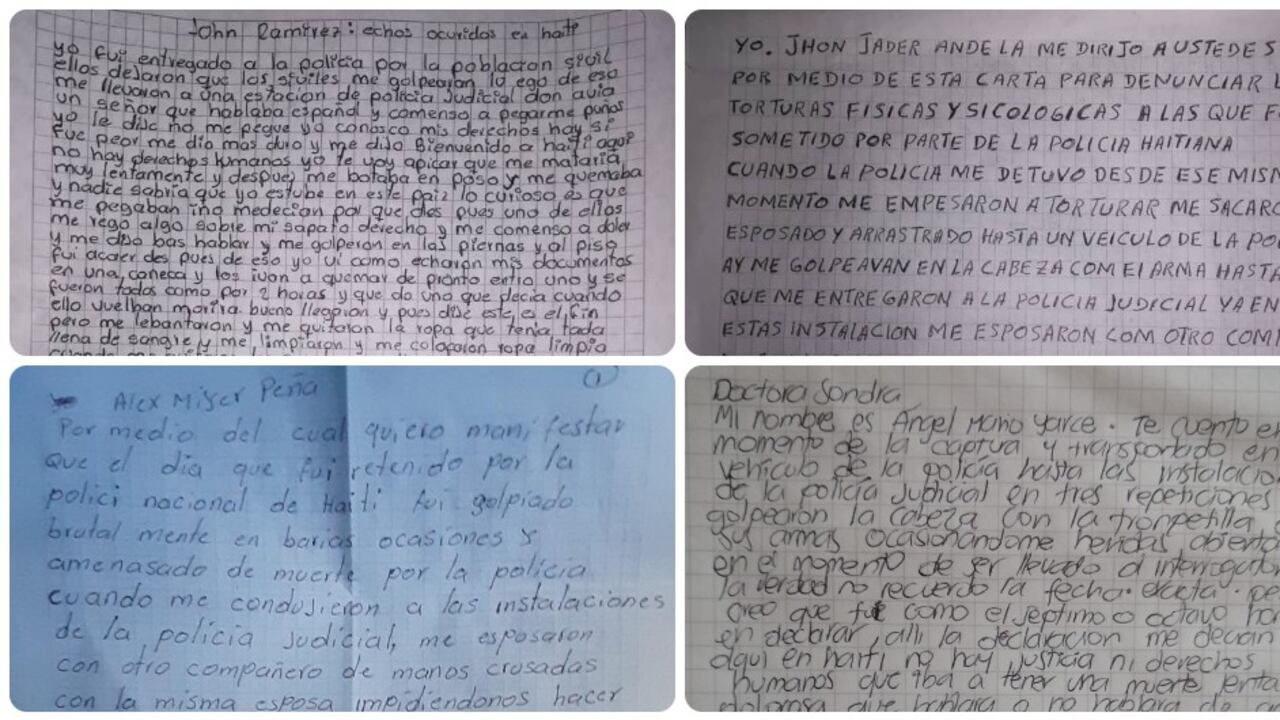 John Ramirez: echos ocuridos en haite
yo fui entregado a la policia por la poblacion sivil
ellos dejaron que los siviles me golpearan lu ego de eso
me llevaron a una estacion de policia Judicial don avia
un señor que hablaba español y comenso a pegarme puños
yo le dije no me pegue yo conosco mis derechos hay si
fue peor me dio mas duro y me dijo Bienvenido a haiti aqui
no hay derechos humanos yo te voy apicar que me mataria
muy lentamente y despues me botaba en poso y me quemaba
y nadie sabria que yo estube en este paiz lo curioso es que
me pegaban ino medecian por que, des pues uno de ellos
me rego algo sobre mi sapato derecho y me comenso a doler
y me dijo bas hablar y me golperon en las piernas y al piso
fui acaer des pues de eso yo vi como echaron mis documentos
en una caneca y los ivan a quemar de pronto entro uno y se
fueron todos como por 2 horas y que do uno que decia cuando
ello vuelban morira bueno llegaron y pues dije este es el fin
pero me lebantaron y me quitaron la ropa que tenia toda
llena de sangre y me limpiaron y me colocaron ropa limpia
YO. JHON JADER ANDELA ME DIRIJO A USTEDES
POR MEDIO DE ESTA CARTA PARA DENUNCIAR L
TORTURAS FISICAS Y SICOLOGICAS A LAS QUE F
SOMETIDO POR PARTE DE LA POLICIA HAITIANA
CUANDO LA POLICIA ME DETUVO DESDE ESE MISM
MOMENTO ME EMPESARON A TORTURAR ME SACARO
ESPOSADO Y ARRASTRADO HASTA UN VEICULO DE LA PO
AY ME GOLPEAVAN EN LA CABEZA COM El ARMA HASTA
QUE ME ENTREGARON A LA POLICIA JUDICIAL YA EN
ESTAS INSTALACION ME ESPOSARON COM OTRO COM
1
Alex Miyer Peña
Por medio del cual quiero manifestar
que el dia que fui retenido por la
polici nacional de Haiti fui golpiado
brutal mente en barias ocasiones y
amenasado de muerte por la policia
cuando me condujieron a las instalaciones
de la policia Judicial, me esposaron
con otro compañero de manos crusadas
con la misma esposa impidiendonos hacer
Doctora Sondra
Mi nombre es Angel Mario Yarce. Te cuento en
momento de la captura y transportado en
vehiculo de la policia hasta las instalacion
de la policia Judicial en tres repeticiones
golpearon la cabeza con la trompetilla
sus armas ocasionandome heridas abierta
en el momento de ser llevado al interrogator
la verdad no recuerdo la fecha exacta. pe
creo que fue como el septimo o octavo ho
en declarar, alli la declaracion me decian
aqui en haiti no hay justicia ni derechos
humanos que iba a tener una muerte lenta
dolorosa que hablara o no hablara